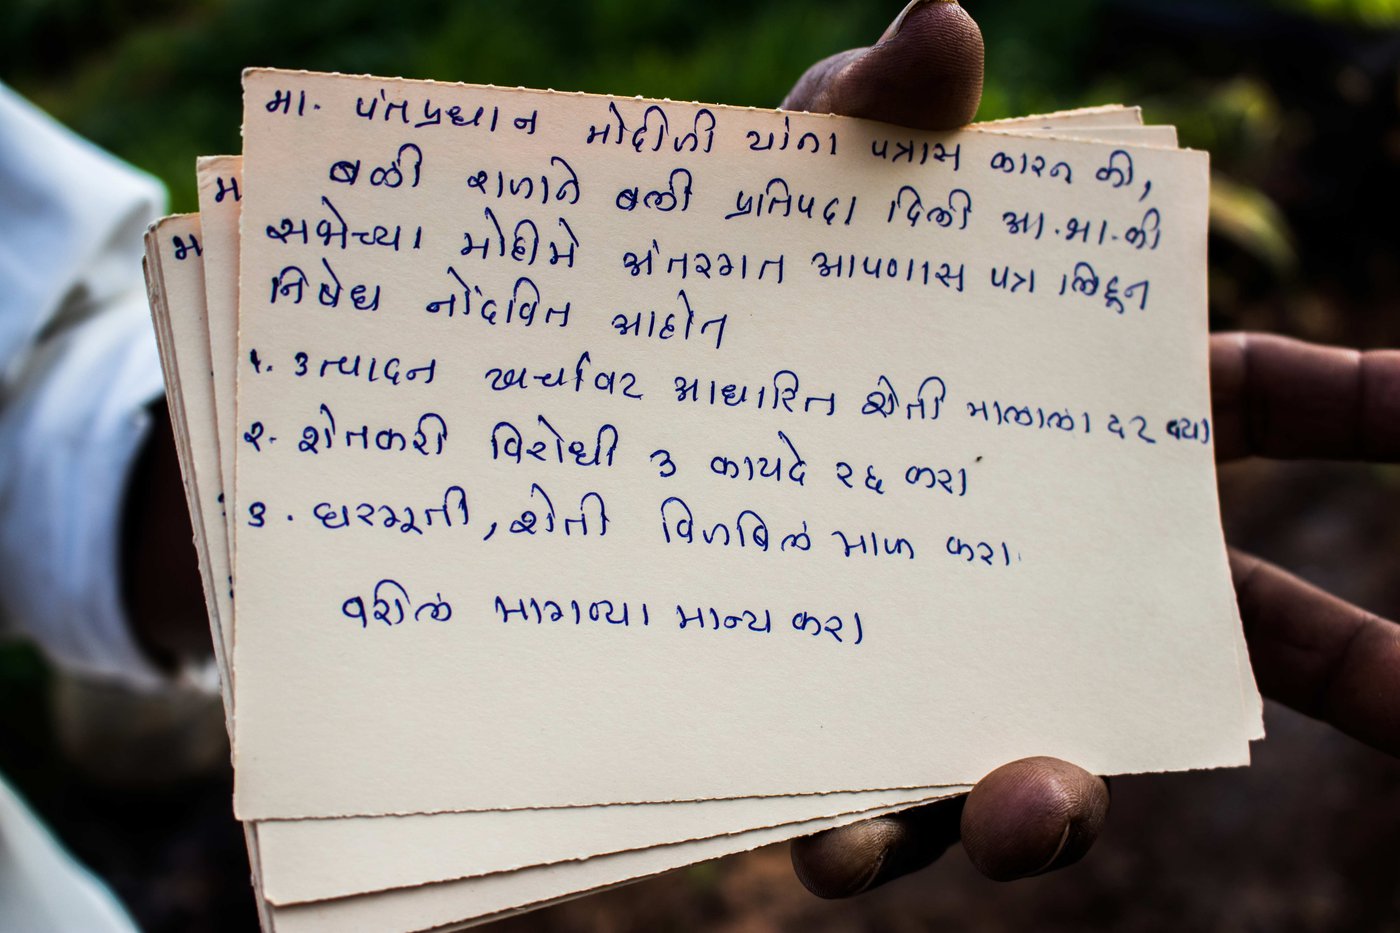 મા. પંતપ્રધાન મોદીજી યાંના પત્રાસ કારન કી,
બળી રાજાને બળી પ્રતિપદા દિલી આ.ભા.કી
સભેચ્યા મોહીમે અંતરગત આપણાસ પત્ર લિહૂન
નિષેધ નોંદવિત આહોત
૧. ઉત્પાદન ખર્ચાવર આધારિત શેતી માલાલા દર દ્યા
૨. શેતકરી વિરોધી ૩ કાયદે રદ્દ કરા
૩. ઘરગૂતી, શેતી વિજબિલં માફ કરા.
વરીલ માગન્યા માન્ય કરા